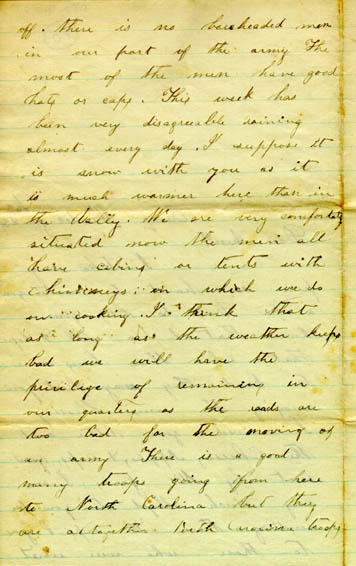 off. there is no bareheaded men
in our part of the army The
most of the men have good
hats or caps. This week has
been very disagreeable raining
almost every day. I suppose it
is snow with you as it
is much warmer here than in
the Valley. We are very comfortably
situated now the men all
have cabins or tents with
chimneys in which we do
our cooking I think that
as long as the weather keeps
bad we will have the
privilege of remaining in
our quarters as the roads are
too bad for the moving of
an army There is a good
many troops going from here
to North Carolina but they
are altogether North Carolina troops